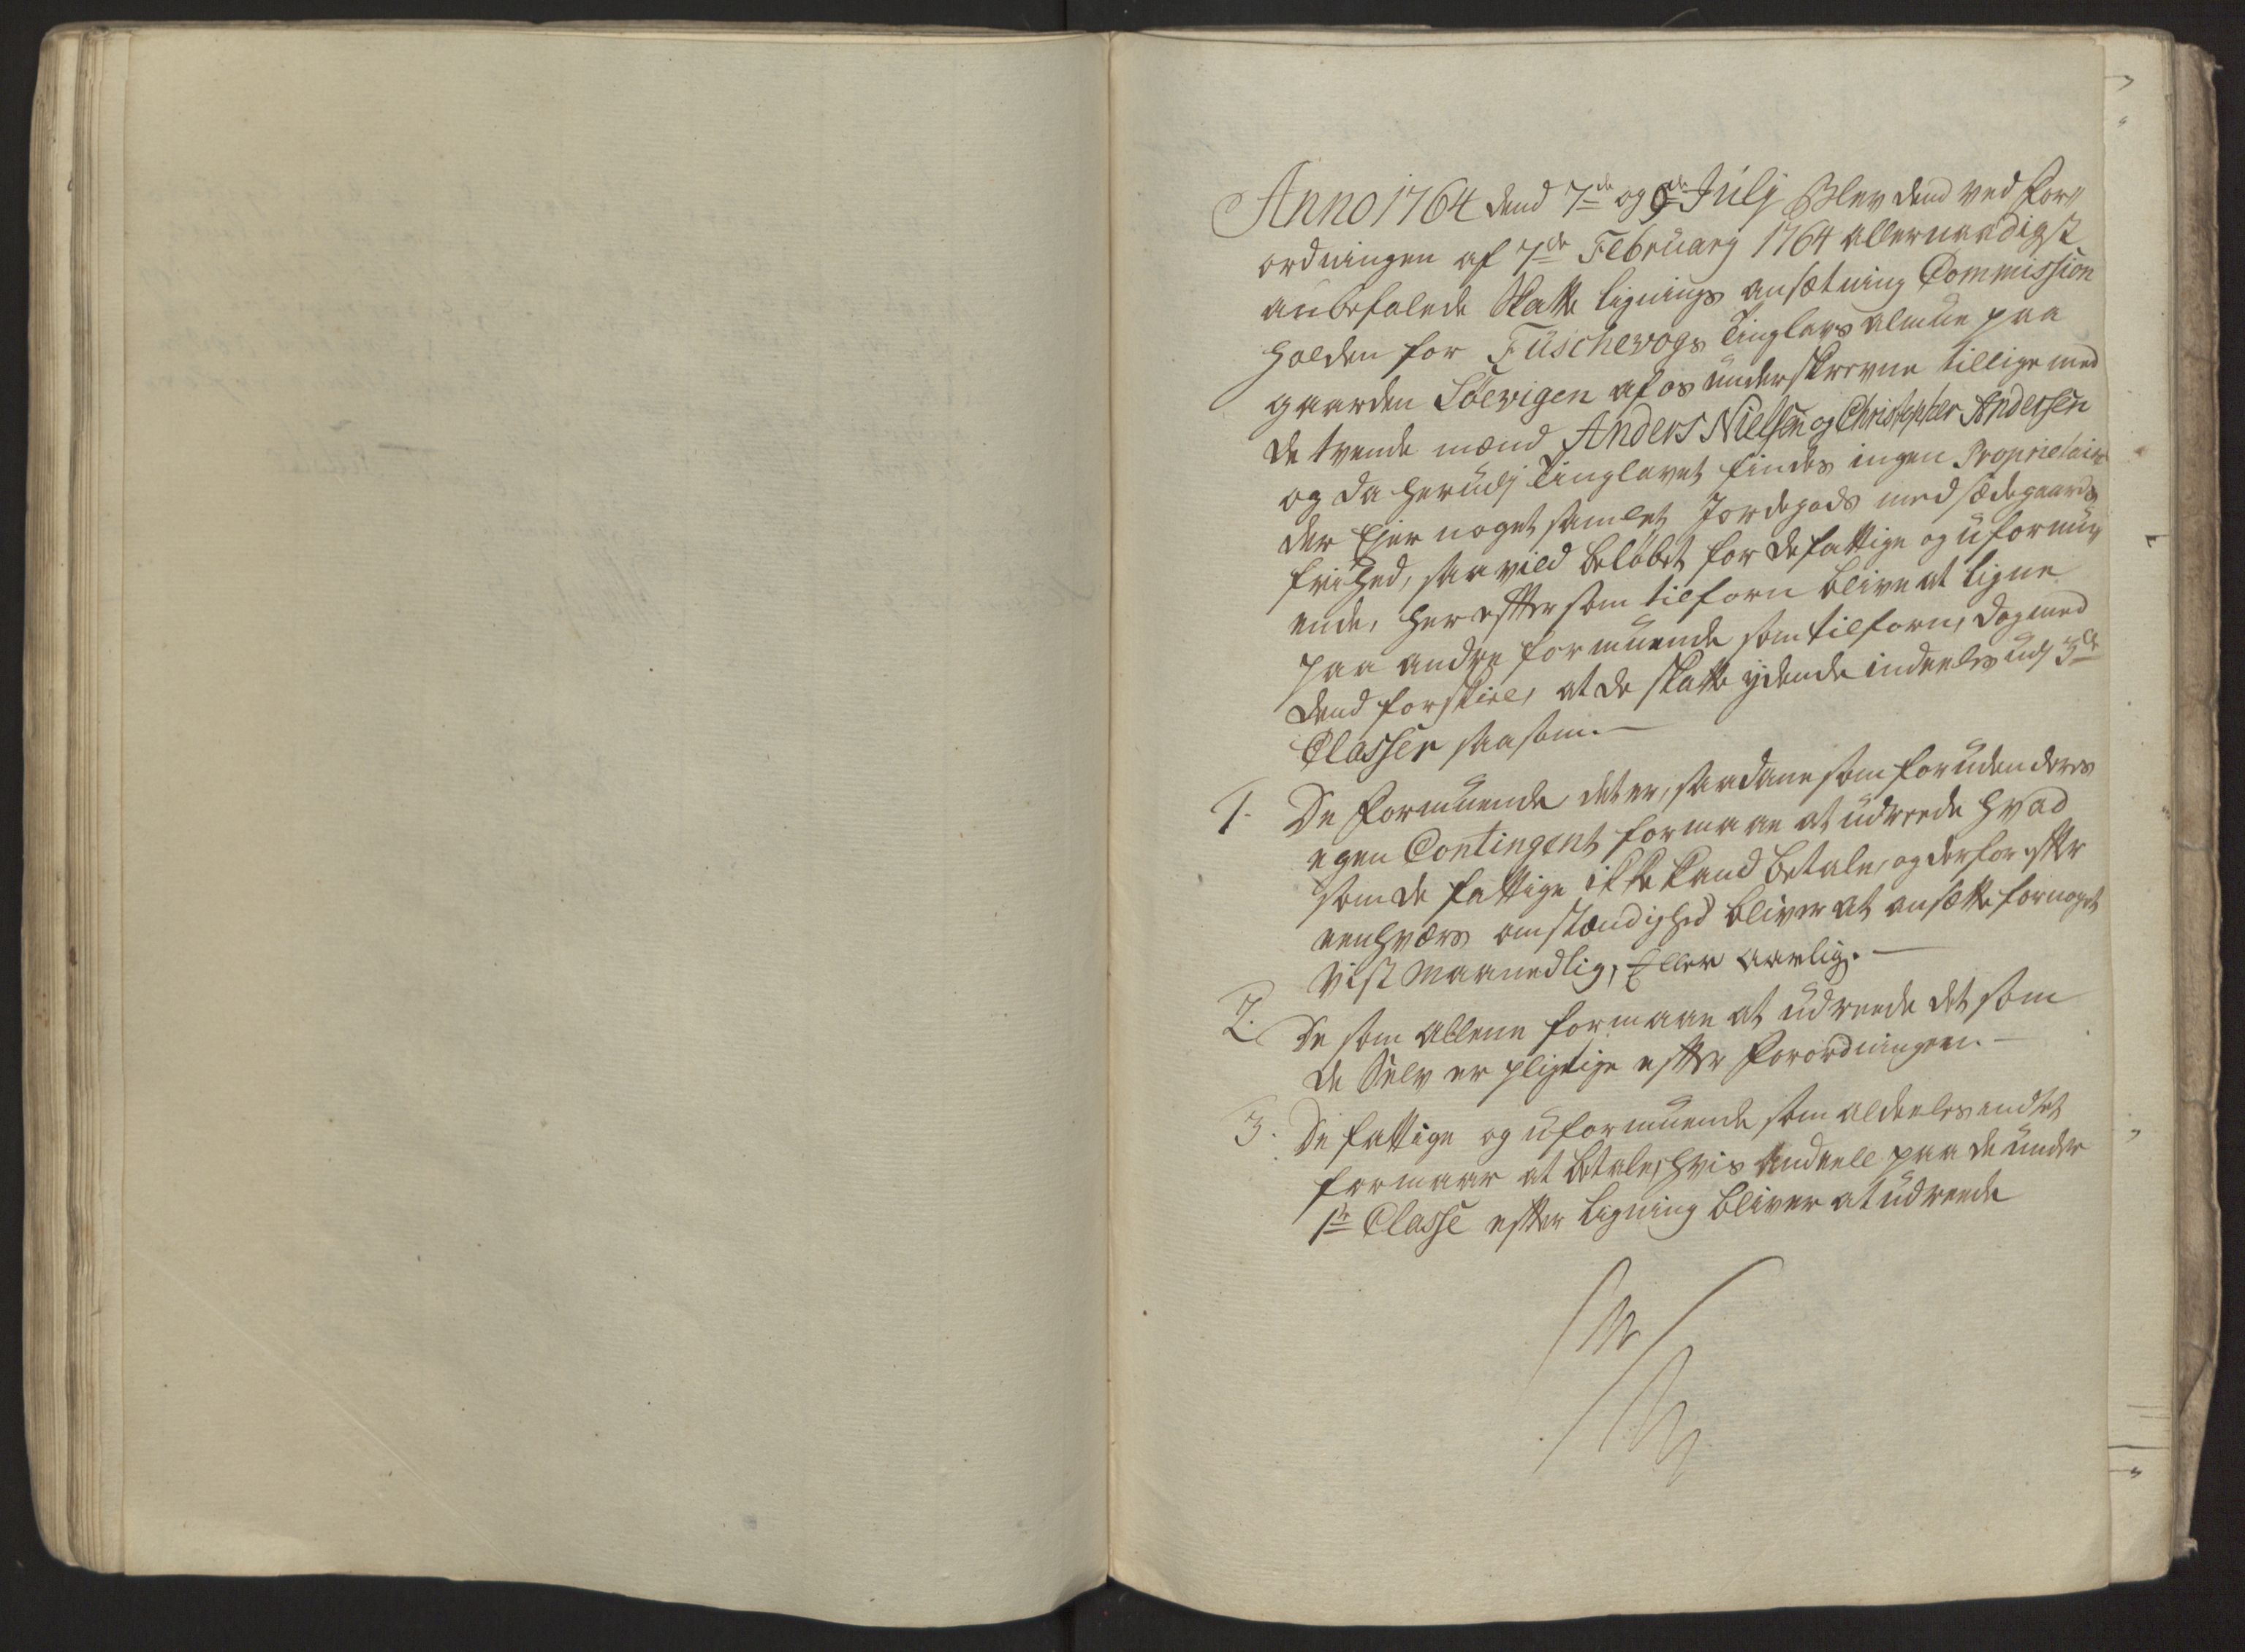 Anno 1764 dend 7de og 9de Julij Blev dend ved For„
ordningen af 7de Februarij 1764 allernaadigst
anbefalede Skatte Lignings ansætning Commission
holden for Fuschevogs Tinglavs almue paa
gaarden Söevigen af os underskrevne tillige med
de tvende mænd Anders Nielsen og Christopher Andersen
og da herudj Tinglavet findes ingen Proprietair
der Ejer noget samlet Jordegods med sædegaards
frihed, saa vild beløbet for de fattige og uformu„
ende, her effter som tilforn blive at ligne
paa andre formuende som tilforn, dog med
dend forskiel, at de skatte ydende indeeles udj 3de
Classer saasom.
1. De Formuende det er, saadane som foruden deres
egen Contingent formaae at udreede hvad
som de fattige ikke kand betale, og derfor effter
eenhvers omstændighed bliver at ansætte for noget
vist Maanedlig, Eller aarlig.
2. De som allene formaae at udreede det som
de Selv er pligtige effter Forordningen.
3. De fattige og uformuende som aldeeles indtet
formaar at betale, hvis Andeell paa de under
1te Classe effter Ligning bliver at udreede